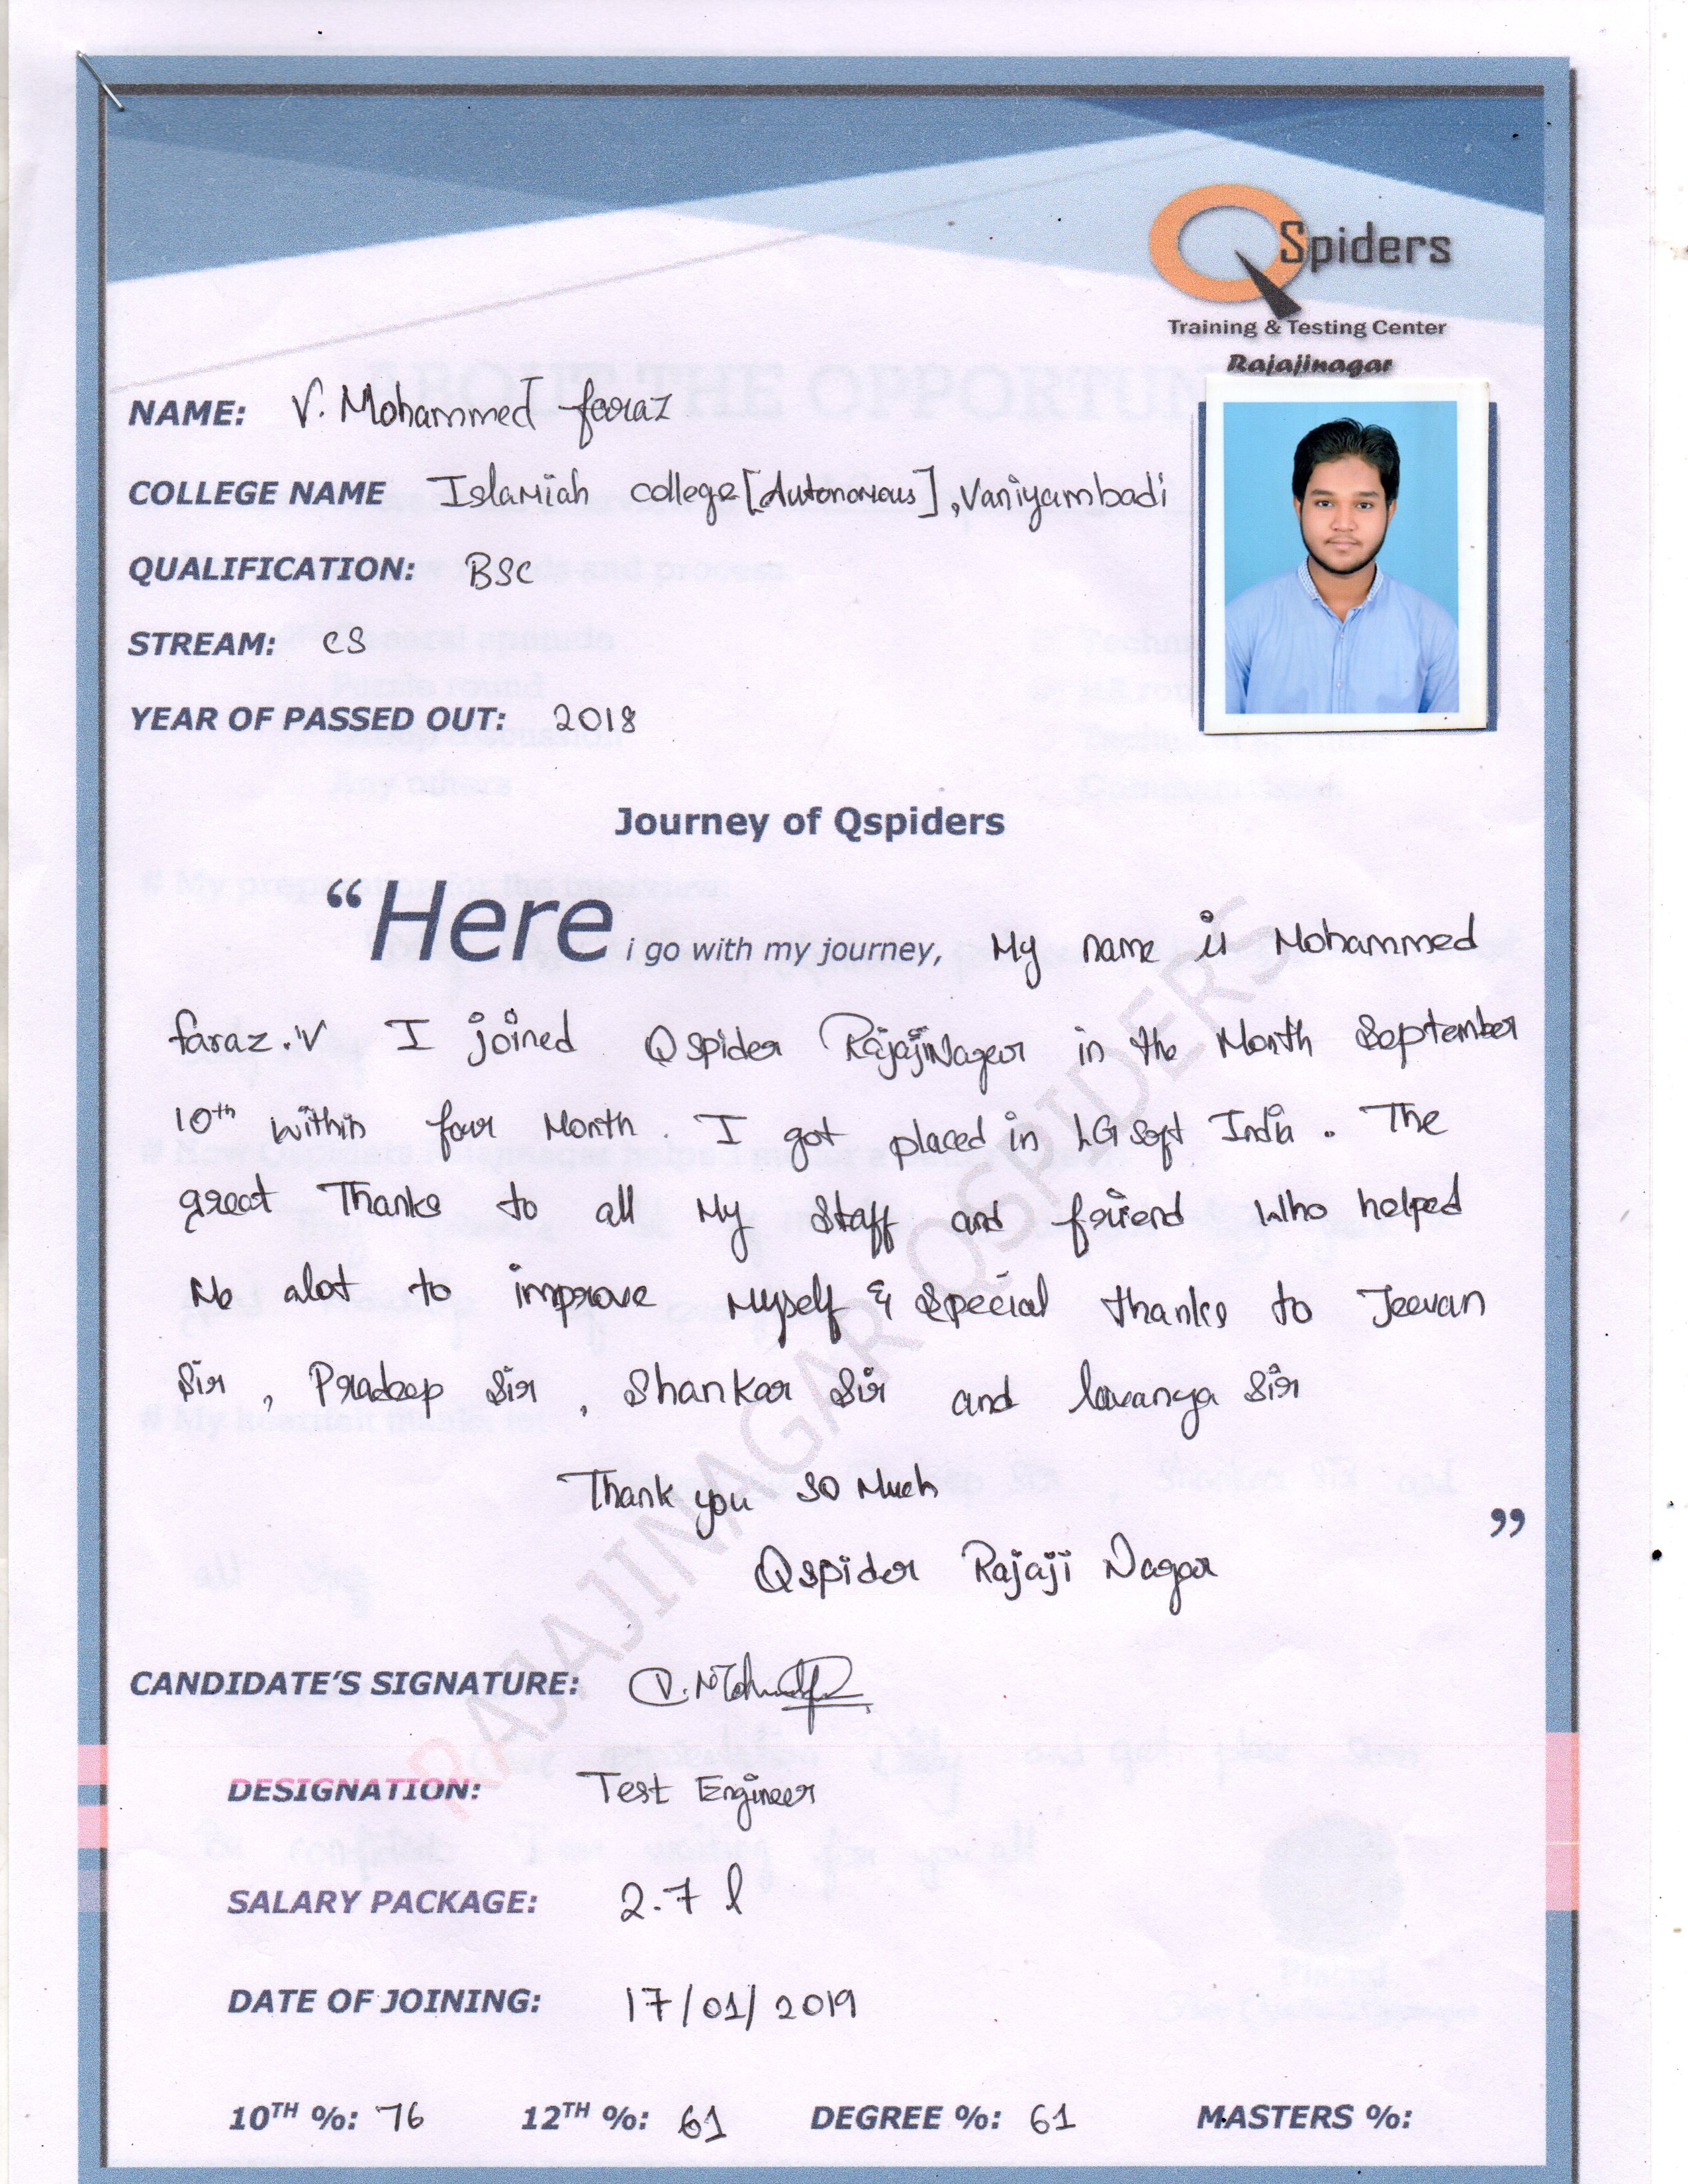 QSpiders
Training & Testing Center
Rajajinagar
NAME: V. Mohammed faraz
COLLEGE NAME Islamiah college [Autonomous], Vaniyambadi
QUALIFICATION: BSC
STREAM: CS
YEAR OF PASSED OUT: 2018
Journey of Qspiders
“Here i go with my journey, My name is Mohammed
faraz.V I joined Qspider RajajiNagar in the Month September
10th within four Month. I got placed in LG Soft India. The
great Thanks to all My Staff and friend who helped
Me alot to improve Myself & Special thanks to Jeevan
Sir, Pradeep Sir, Shankar Sir and lavanya Sir
Thank you so Much
”
Qspider Rajaji Nagar
RAJAJINAGAR QSPIDERS
CANDIDATE'S SIGNATURE:
DESIGNATION: Test Engineer
SALARY PACKAGE: 2.7 l
DATE OF JOINING: 17/01/2019
10TH %: 76 12TH %: 61 DEGREE %: 61 MASTERS %: